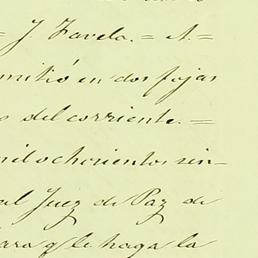 = J Zavala. = A. =
mitió en dos fojas
s del corriente. =
mil ochocientos cin-
al Juez de Paz de
para q̃ le haga la